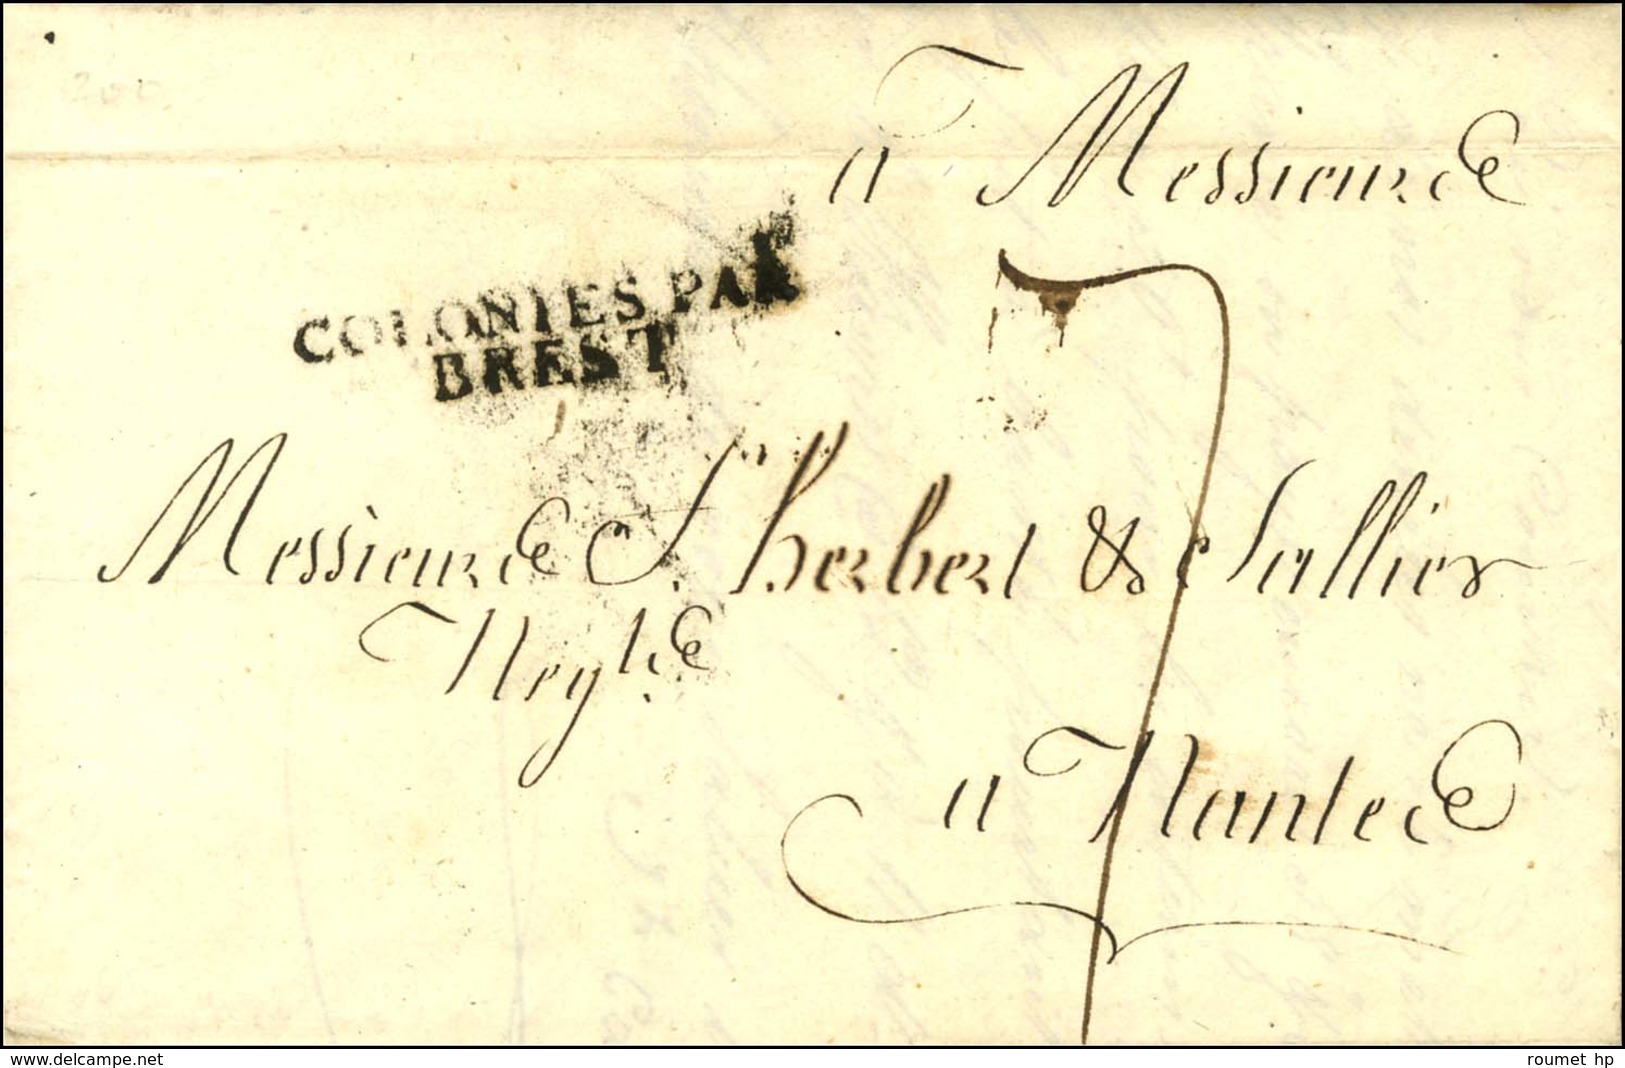 200
a Messieurs
COLONIES PAR
BREST
7
Messieurs S. herbert & Sallier
Negts.
a Nantes
www.delcampe.net
roumet hp